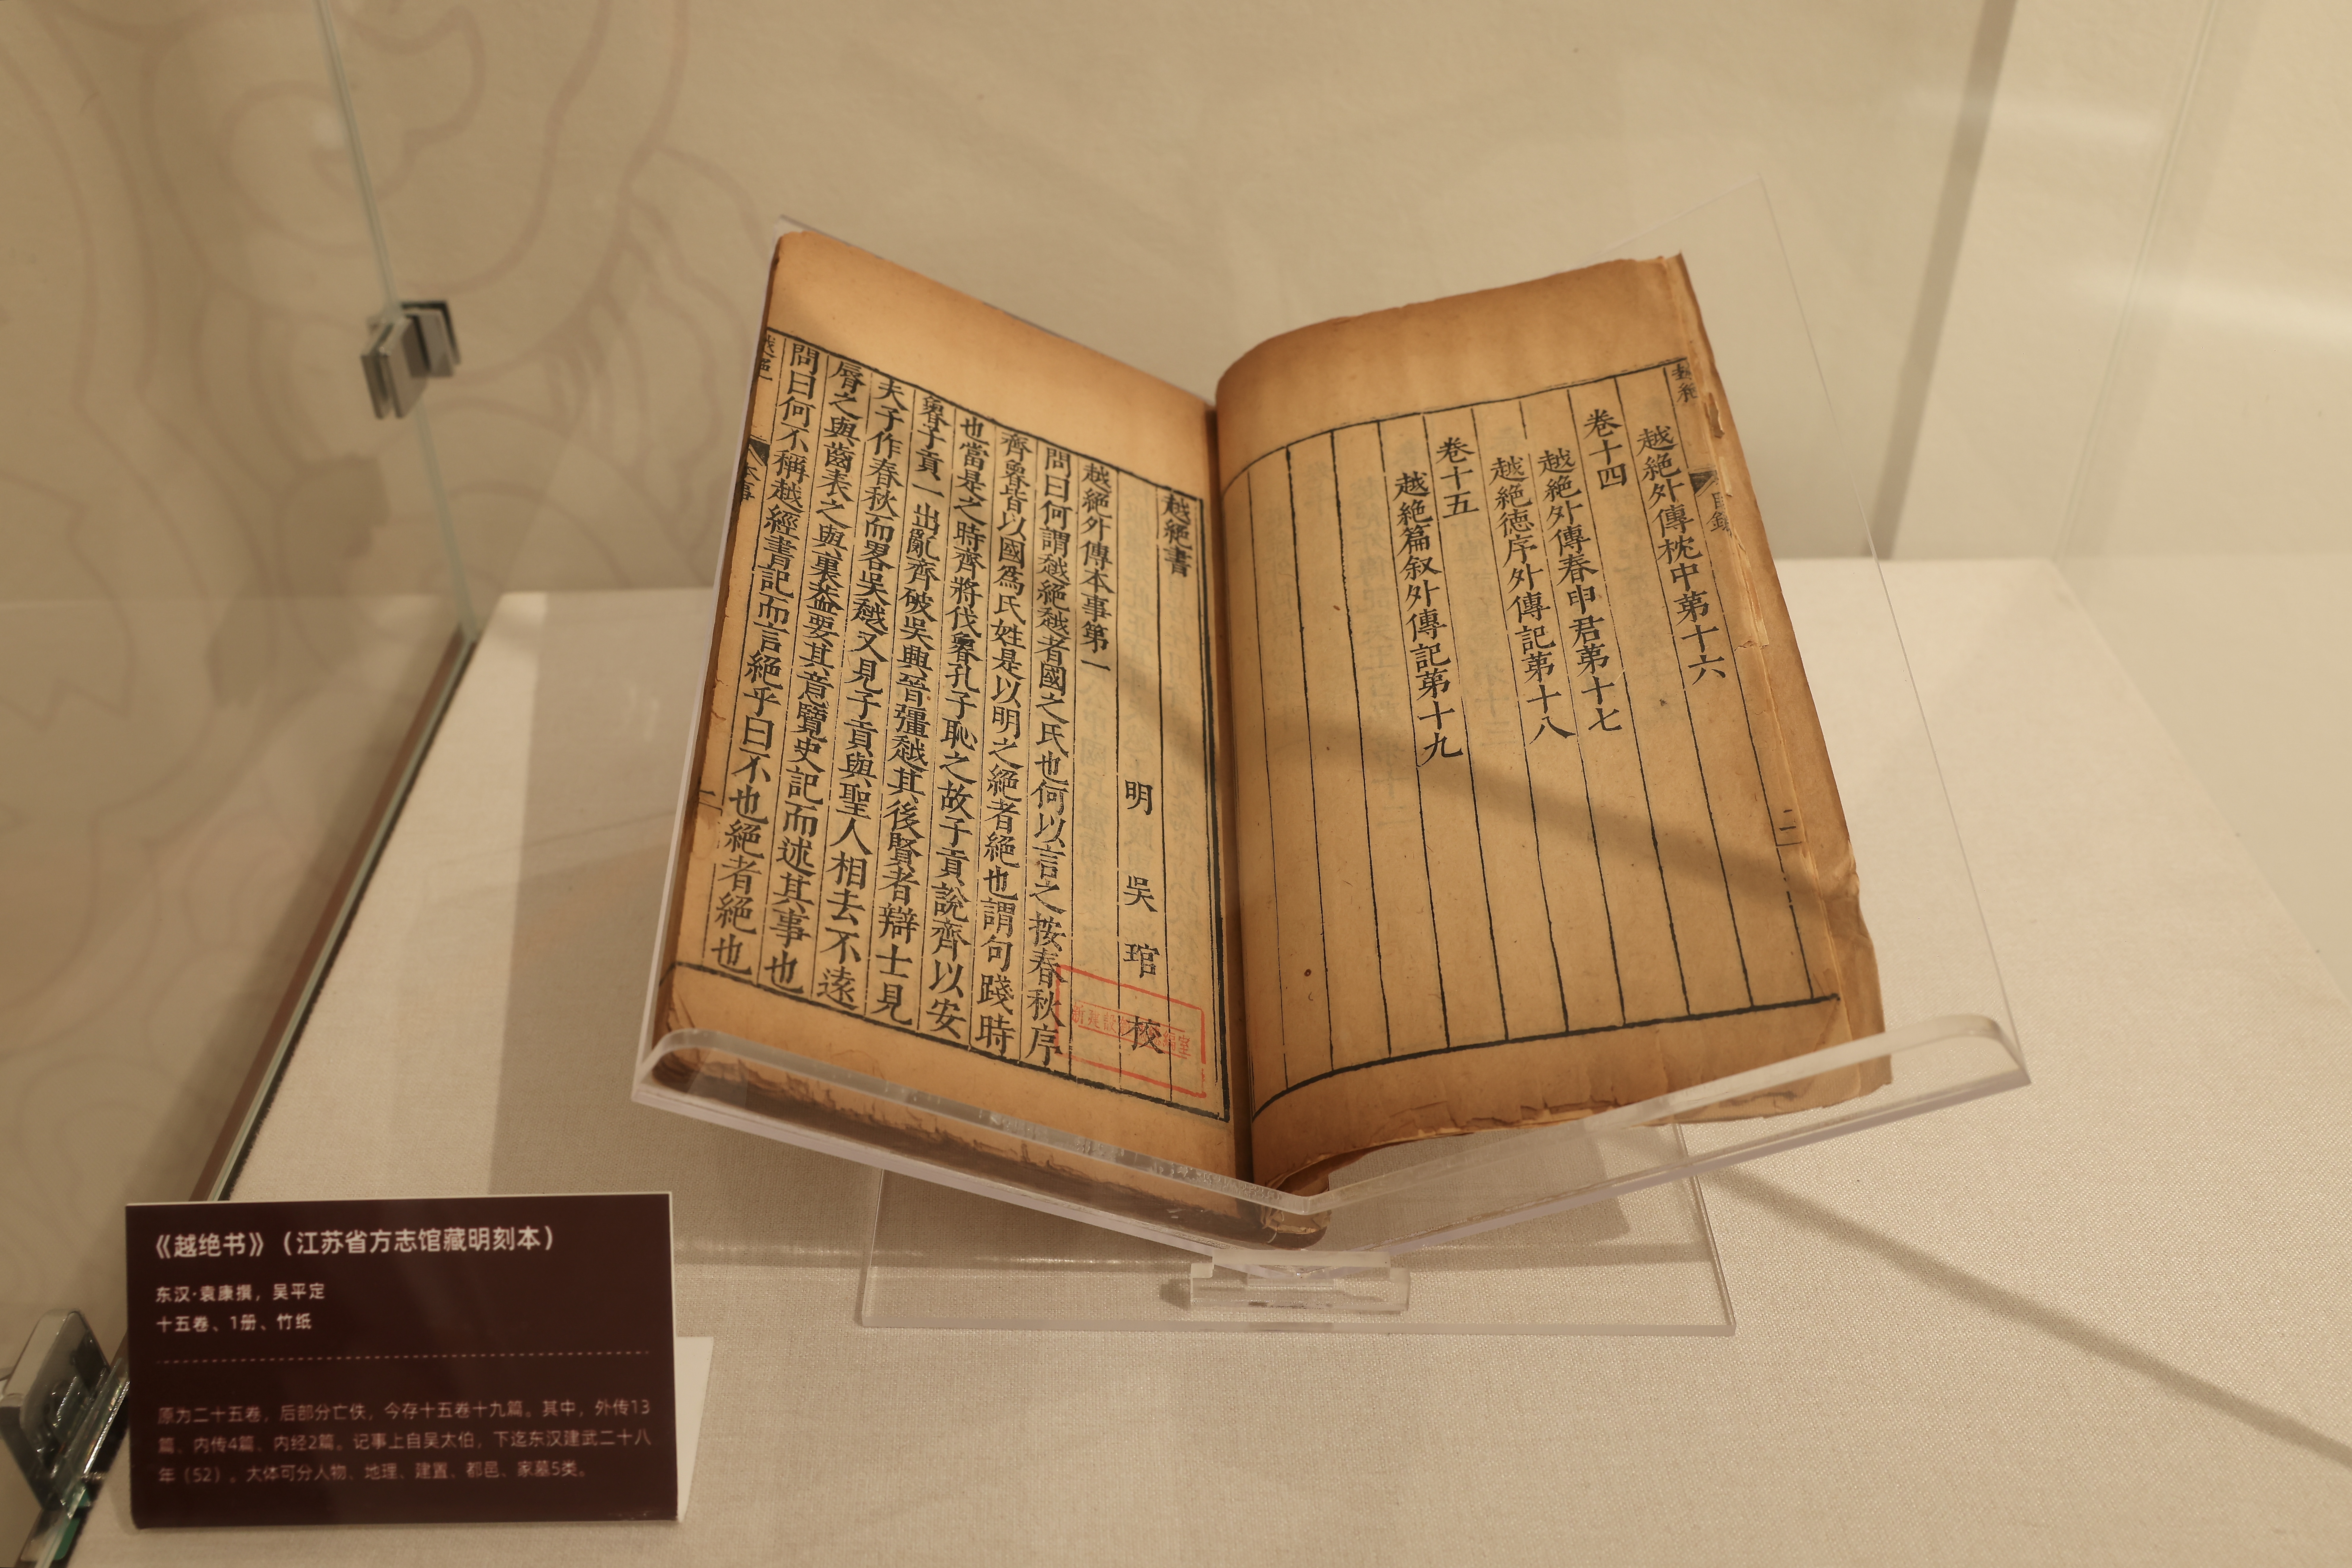 越絕外傳枕中第十六
卷十四
越絕外傳春申君第十七
越絕德序外傳記第十八
卷十五
越絕篇叙外傳記第十九
目錄
二
越絕書
明吳琯校
越絕外傳本事第一
問曰何謂越絕越者國之氏也何以言之按春秋序
齊魯皆以國爲氏姓是以明之絕者絕也謂句踐時
也當是之時齊將伐魯孔子恥之故子貢說齊以安
魯子貢一出亂齊破吳興晉彊越其後賢者辯士見
夫子作春秋而畧吳越又見子貢與聖人相去不遠
脣之與齒表之與裏葢要其意覽史記而述其事也
問曰何不稱越經書記而言絕乎曰不也絕者絕也
越絕
本事
一
《越绝书》（江苏省方志馆藏明刻本）
东汉·袁康撰，吴平定
十五卷、1册、竹纸
原为二十五卷，后部分亡佚，今存十五卷十九篇。其中，外传13
篇、内传4篇、内经2篇。记事上自吴太伯，下迄东汉建武二十八
年（52）。大体可分人物、地理、建置、都邑、家墓5类。